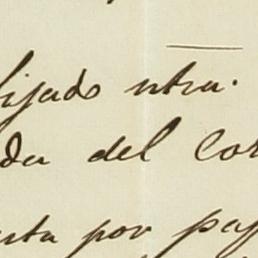 fijado ntra.
da del cor
sta por pap